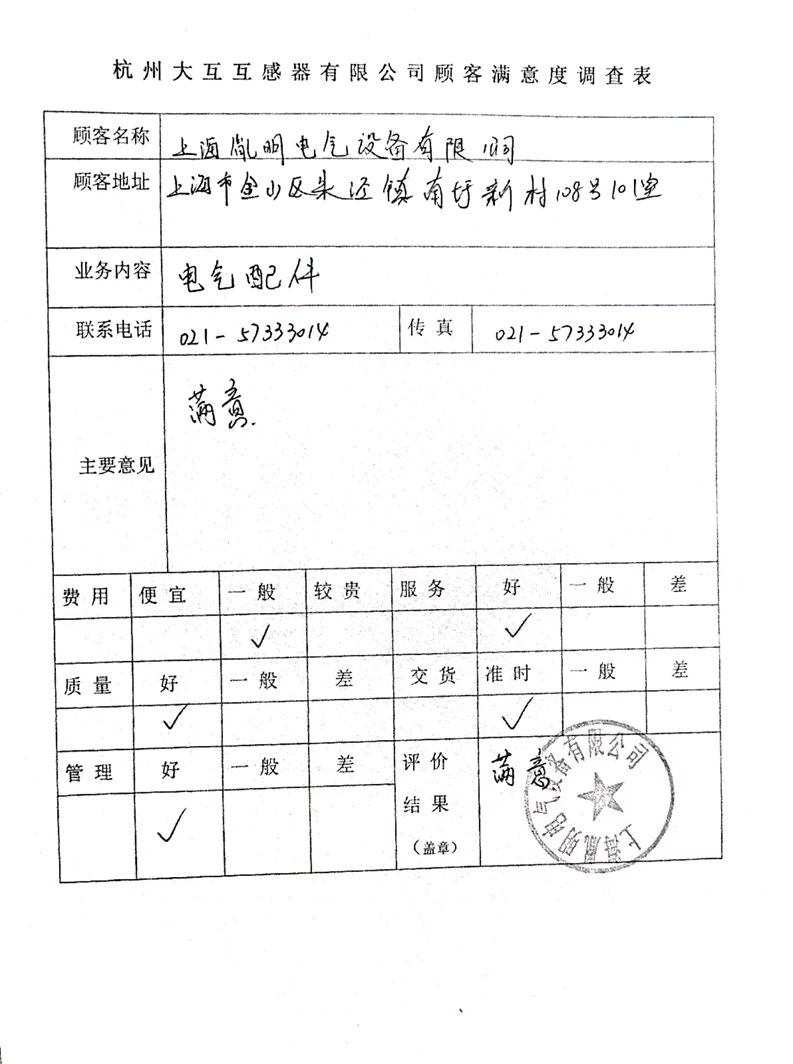 杭州大互互感器有限公司顾客满意度调查表
顾客名称 上海胤明电气设备有限公司
顾客地址 上海市金山区朱泾镇南圩新村108号101室
业务内容 电气配件
联系电话 021-57333014 传真 021-57333014
主要意见 满意.
费用 便宜 一般 较贵 服务 好 一般 差
✓ ✓
质量 好 一般 差 交货 准时 一般 差
✓ ✓
管理 好 一般 差 评价
结果
(盖章) 满意
✓
上海胤明电气设备有限公司